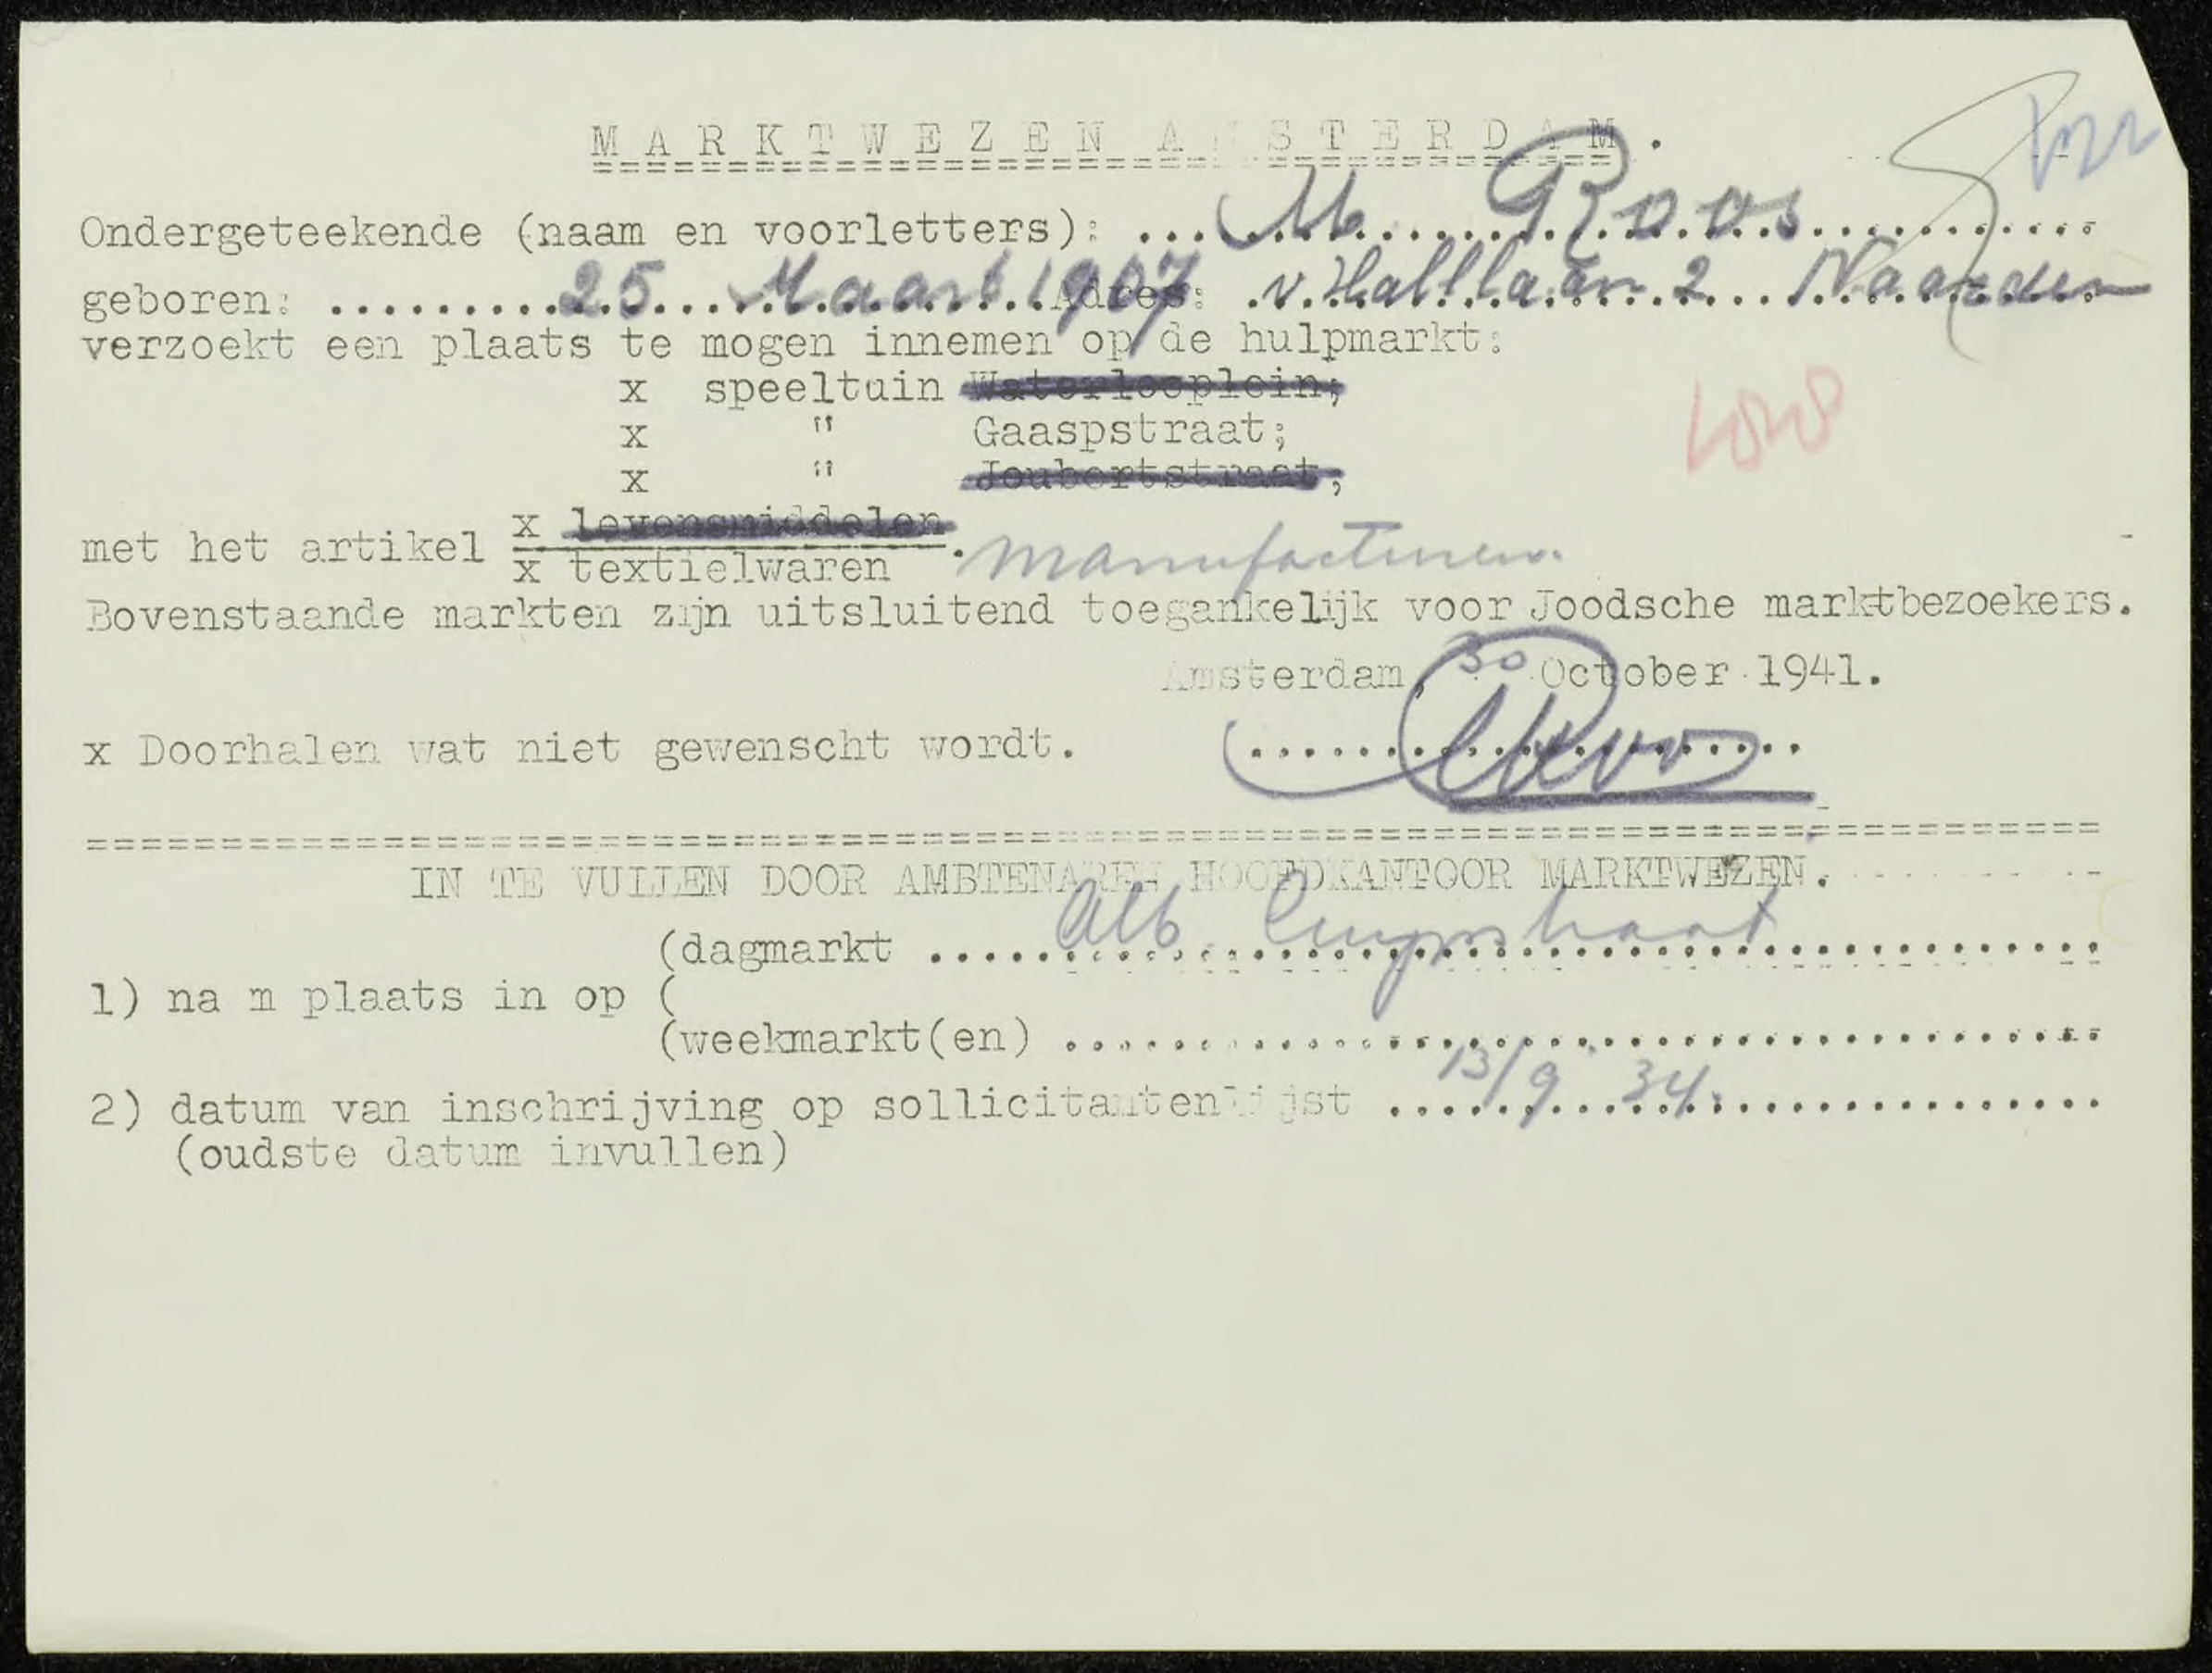 MARKTWEZEN AMSTERDAM.
Ondergeteekende (naam en voorletters): ... M. Roos
geboren: ... 25 Maart 1907 Adres: v. Hall laan 2 Naarden
verzoekt een plaats te mogen innemen op de hulpmarkt:
x speeltuin Waterlooplein;
x " Gaaspstraat;
x " Joubertstraat;
x levensmiddelen
met het artikel
x textielwaren . manufacturen.
Bovenstaande markten zijn uitsluitend toegankelijk voor Joodsche marktbezoekers.
Amsterdam, 30 October 1941.
x Doorhalen wat niet gewenscht wordt.
IN TE VULLEN DOOR AMBTENAREN HOOFDKANTOOR MARKTWEZEN.
(dagmarkt ... Alb Cuypstraat
1) na m plaats in op (
(weekmarkt(en) ...
2) datum van inschrijving op sollicitantenlijst ... 13/9 34.
(oudste datum invullen)